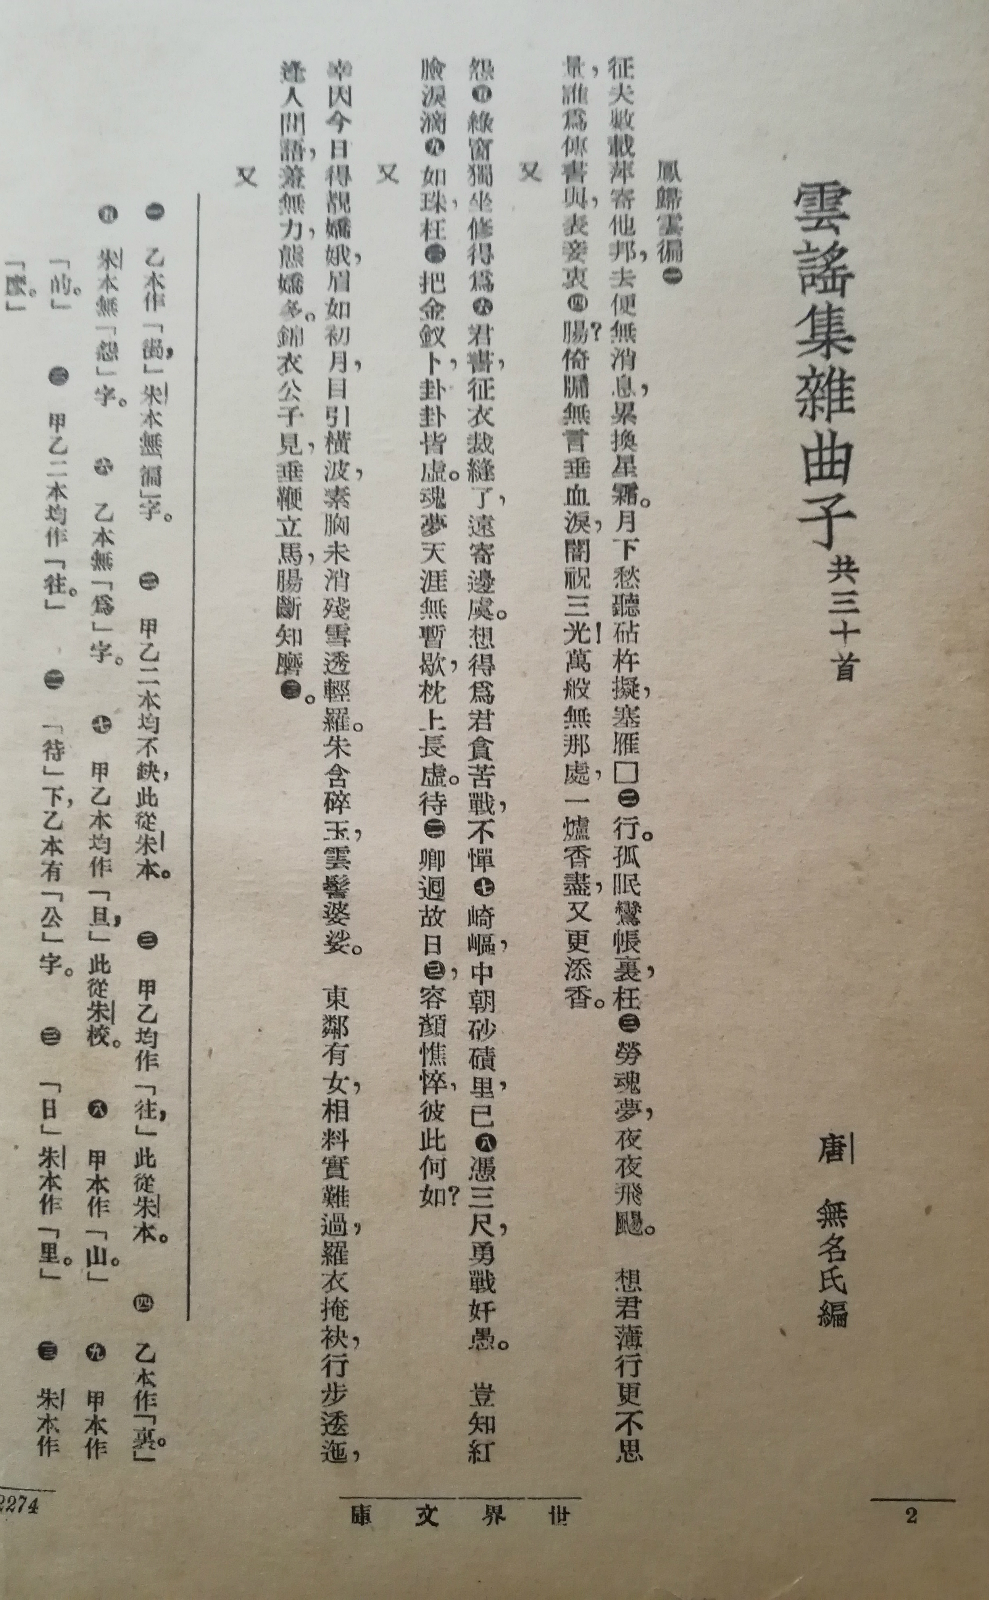 雲謠集雜曲子共三十首
唐 無名氏編
鳳歸雲徧㊀
征夫數載，萍寄他邦，去便無消息，累換星霜。月下愁聽砧杵，擬塞雁□㊁行。孤眠鸞帳裏，枉㊂勞魂夢，夜夜飛颺。 想君薄行更不思
量，誰爲傳書與，表妾衷㊃腸？倚牖無言垂血淚，闇祝三光！萬般無那處，一爐香盡，又更添香。
又
怨㊄綠窗獨坐，修得爲㊅君書，征衣裁縫了，遠寄邊虞。想得爲君貪苦戰，不憚㊆崎嶇，中朝砂磧里，已㊇憑三尺，勇戰奸愚。 豈知紅
臉淚滴㊈如珠，枉㊀把金釵卜，卦卦皆虛。魂夢天涯無暫歇，枕上長虛。待㊁卿迴故日㊂，容顏憔悴，彼此何如？
又
幸因今日得覩嬌娥，眉如初月，目引橫波，素胸未消殘雪透輕羅。朱含碎玉，雲髻婆娑。 東鄰有女，相料實難過，羅衣掩袂，行步逶迤，
逢人問語，羞無力，態嬌多。錦衣公子見，垂鞭立馬，腸斷知磨㊂。
又
㊀ 乙本作「㵣，」朱本無「徧」字。 ㊁ 甲乙二本均不缺，此從朱本。 ㊂ 甲乙均作「往，」此從朱本。 ㊃ 乙本作「裏。」
㊄ 朱本無「怨」字。 ㊅ 乙本無「爲」字。 ㊆ 甲乙本均作「旦，」此從朱校。 ㊇ 甲本作「山。」 ㊈ 甲本作
「的。」 甲乙二本均作「往。」 「待」下，乙本有「公」字。 「日」朱本作「里。」 朱本作
「麼。」
世界文庫
2
2274